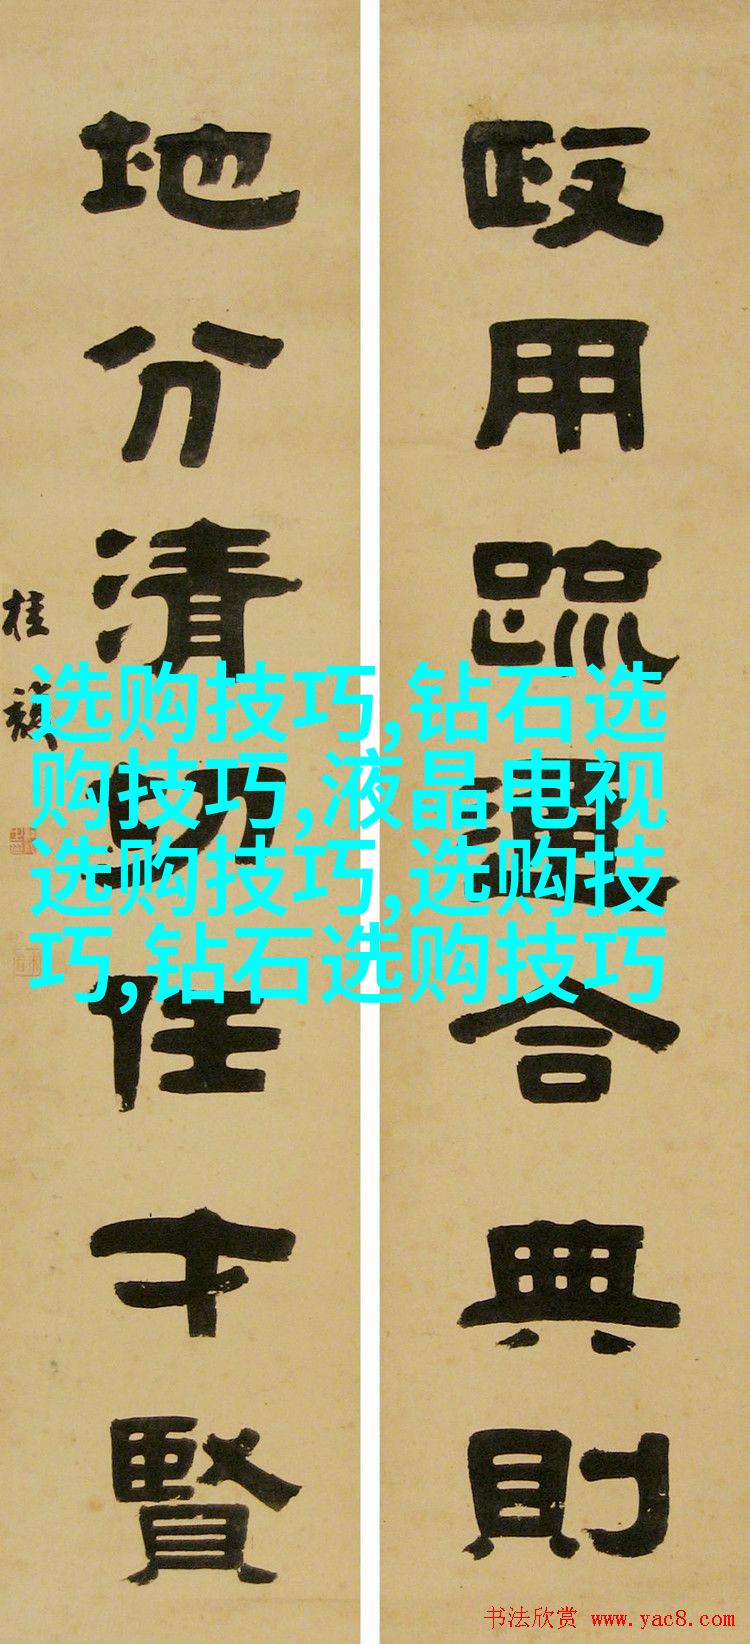 政用疏通合典則
地分清切任才賢
桂馥
选购技巧,钻石选
购技巧,液晶电视
选购技巧,选购技
巧,钻石选购技巧
书法欣赏 www.yac8.com